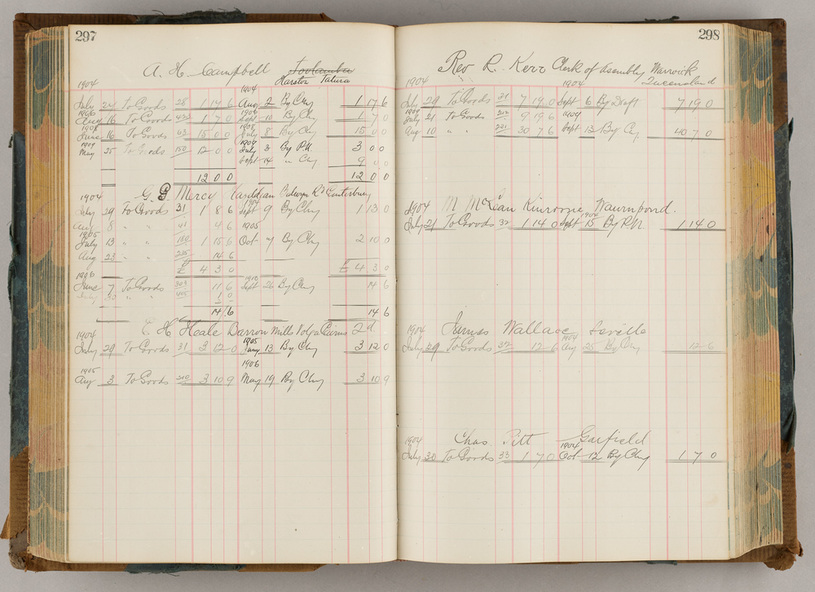 297
A. H. Campbell
Tatura
1904 1904
July 29 To Goods 28 1 17 6 Aug 2 By Chq 1 17 6
Aug 16 To Goods 1 7 0 Sept 10 By Chq 1 7 0
June 16 To Goods 63 15 0 0 July 8 By Chq 15 0 0
May 25 To Goods 150 12 0 0 July 3 By P.N. 3 0 0
Sept 14 " Chq 9 0 0
12 0 0 12 0 0
1904 G. Mercy Canterbury
July 29 To Goods 31 1 8 6 Sept 9 By Chq 1 13 0
Aug 8 " " 41 4 6 1905
July 13 " " 1 15 6 Oct 7 By Chq 2 10 0
Aug 23 " " 14 6
£ 4 3 0 £ 4 3 0
June 7 To Goods 303 11 6 Sept 26 By Chq 14 6
" "
14 6 14 6
1904 E. H. Heale Barron Mill
July 29 To Goods 31 3 12 0 13 By Chq 3 12 0
1905 1906
Aug 3 To Goods 3 10 9 May 19 By Chq 3 10 9
298
Rev R. Kerr Clerk of Assembly Queensland
1904
July 29 To Goods 31 7 19 0 Sept 6 By Draft 7 19 0
July 21 To Goods 9 19 6 1904
Aug 10 " " 221 30 7 6 Sept 12 By Chq 40 7 0
1904 M. McCan
July 21 To Goods 32 1 14 0 Sept 15 By P.N. 1 14 0
1904 James Wallace Seville
July 29 To Goods 32 12 6 Aug 25 By Chq 12 6
1904 Chas Pitt Garfield
July 30 To Goods 33 1 7 0 Oct 12 By Chq 1 7 0